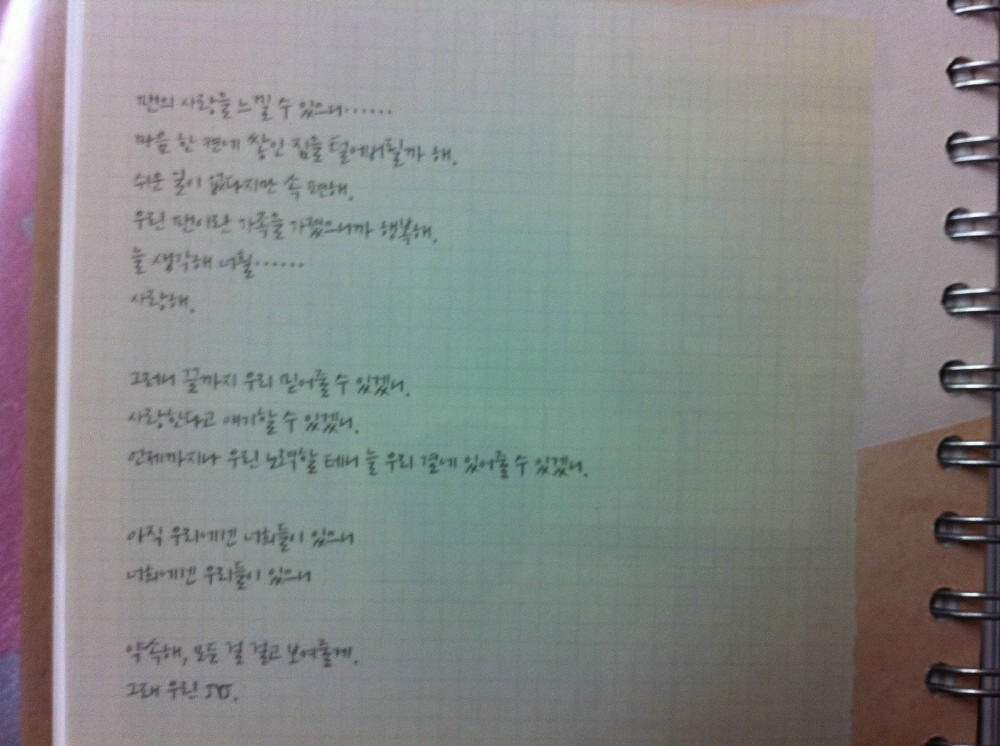 팬의 사랑을 느낄 수 있으니······
마음 한 켠에 쌓인 짐을 털어버릴까 해.
쉬운 일이 없다지만 속 편해.
우린 팬이란 가족을 가졌으니까 행복해.
늘 생각해 너흴······
사랑해.
그러니 끝까지 우리 믿어줄 수 있겠니.
사랑한다고 얘기할 수 있겠니.
언제까지나 우린 노력할 테니 늘 우리 곁에 있어줄 수 있겠니.
아직 우리에겐 너희들이 있으니
너희에겐 우리들이 있으니
약속해, 모든 걸 걸고 보여줄게.
그래 우린 JYJ.